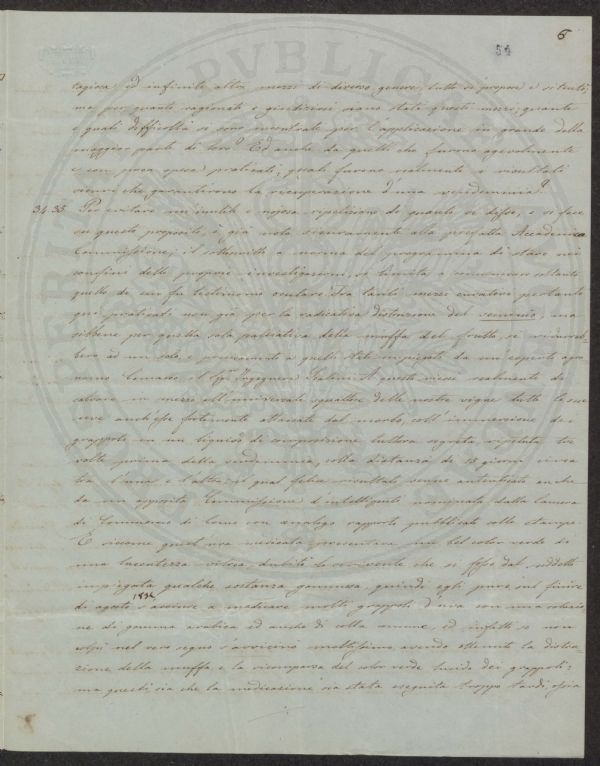 6
54
ed infiniti altri mezzi di diverso genere, tutto si propose e si tentò,
ma per quanto ragionati e giudiziosi siano stati questi mezzi, quante
e quali difficoltà si sono incontrate per l'applicazione in grande della
maggior parte di loro? Ed anche da quelli che furono agevolmente
e con poca spesa praticati, quali furono realmente i risultati
sicuri che garantirono la ricuperazione d'una vendemmia?
34.35. Per evitare un'inutile e nojosa ripetizione di quanto si disse, e si fece
su questo proposito, e già noto sicuramente alla prefatta Accademica
Commissione, il sottoscritto a norma del programma di stare nei
confini delle proprie investigazioni, si limita a rammentare soltanto
quello di cui fu testimonio oculare. Tra tanti mezzi curativi pertanto
qui praticati non già per la radicativa distruzione del , ma
sibbene per quella sola palliativa della muffa del frutto, si
ad un solo, e precisamente a quello stato impiegato da un esperto agro
nomo Comasco il Sig. Ingegnere A questo riesce realmente di
salvare in mezzo all'universale squallore delle nostre vigne tutte le sue
uve anch'esse fortemente attaccate dal morbo, coll'immersione dei
grappoli in un liquido di composizione tuttora segreta, ripetuta tre
volte prima della vendemmia, colla distanza di 15 giorni circa
tra l'una e l'altra; il qual felice risultato venne autenticato anche
da un apposita Commissione d'intelligenti nominata dalla Camera
di Commercio di Como con analogo rapporto pubblicato colle stampe.
E siccome quest'uva medicata presentava un bel color verde di
una lucentezza vitrea, dubitò lo scrivente che si fosse dal suddetto
impiegata qualche sostanza gommosa, quindi egli pure sul finire
di agosto 1856 s'accinse a medicare molti grappoli d'uva con una soluzio
ne di gomma arabica ed anche di colla comune, ed infatti se non
colpì nel vero segno s'avvicinò moltissimo, avendo ottenuto la distru
zione della muffa e la ricomparsa del color verde lucido dei grappoli;
ma questi sia che la medicazione sia stata eseguita troppo tardi, ossia